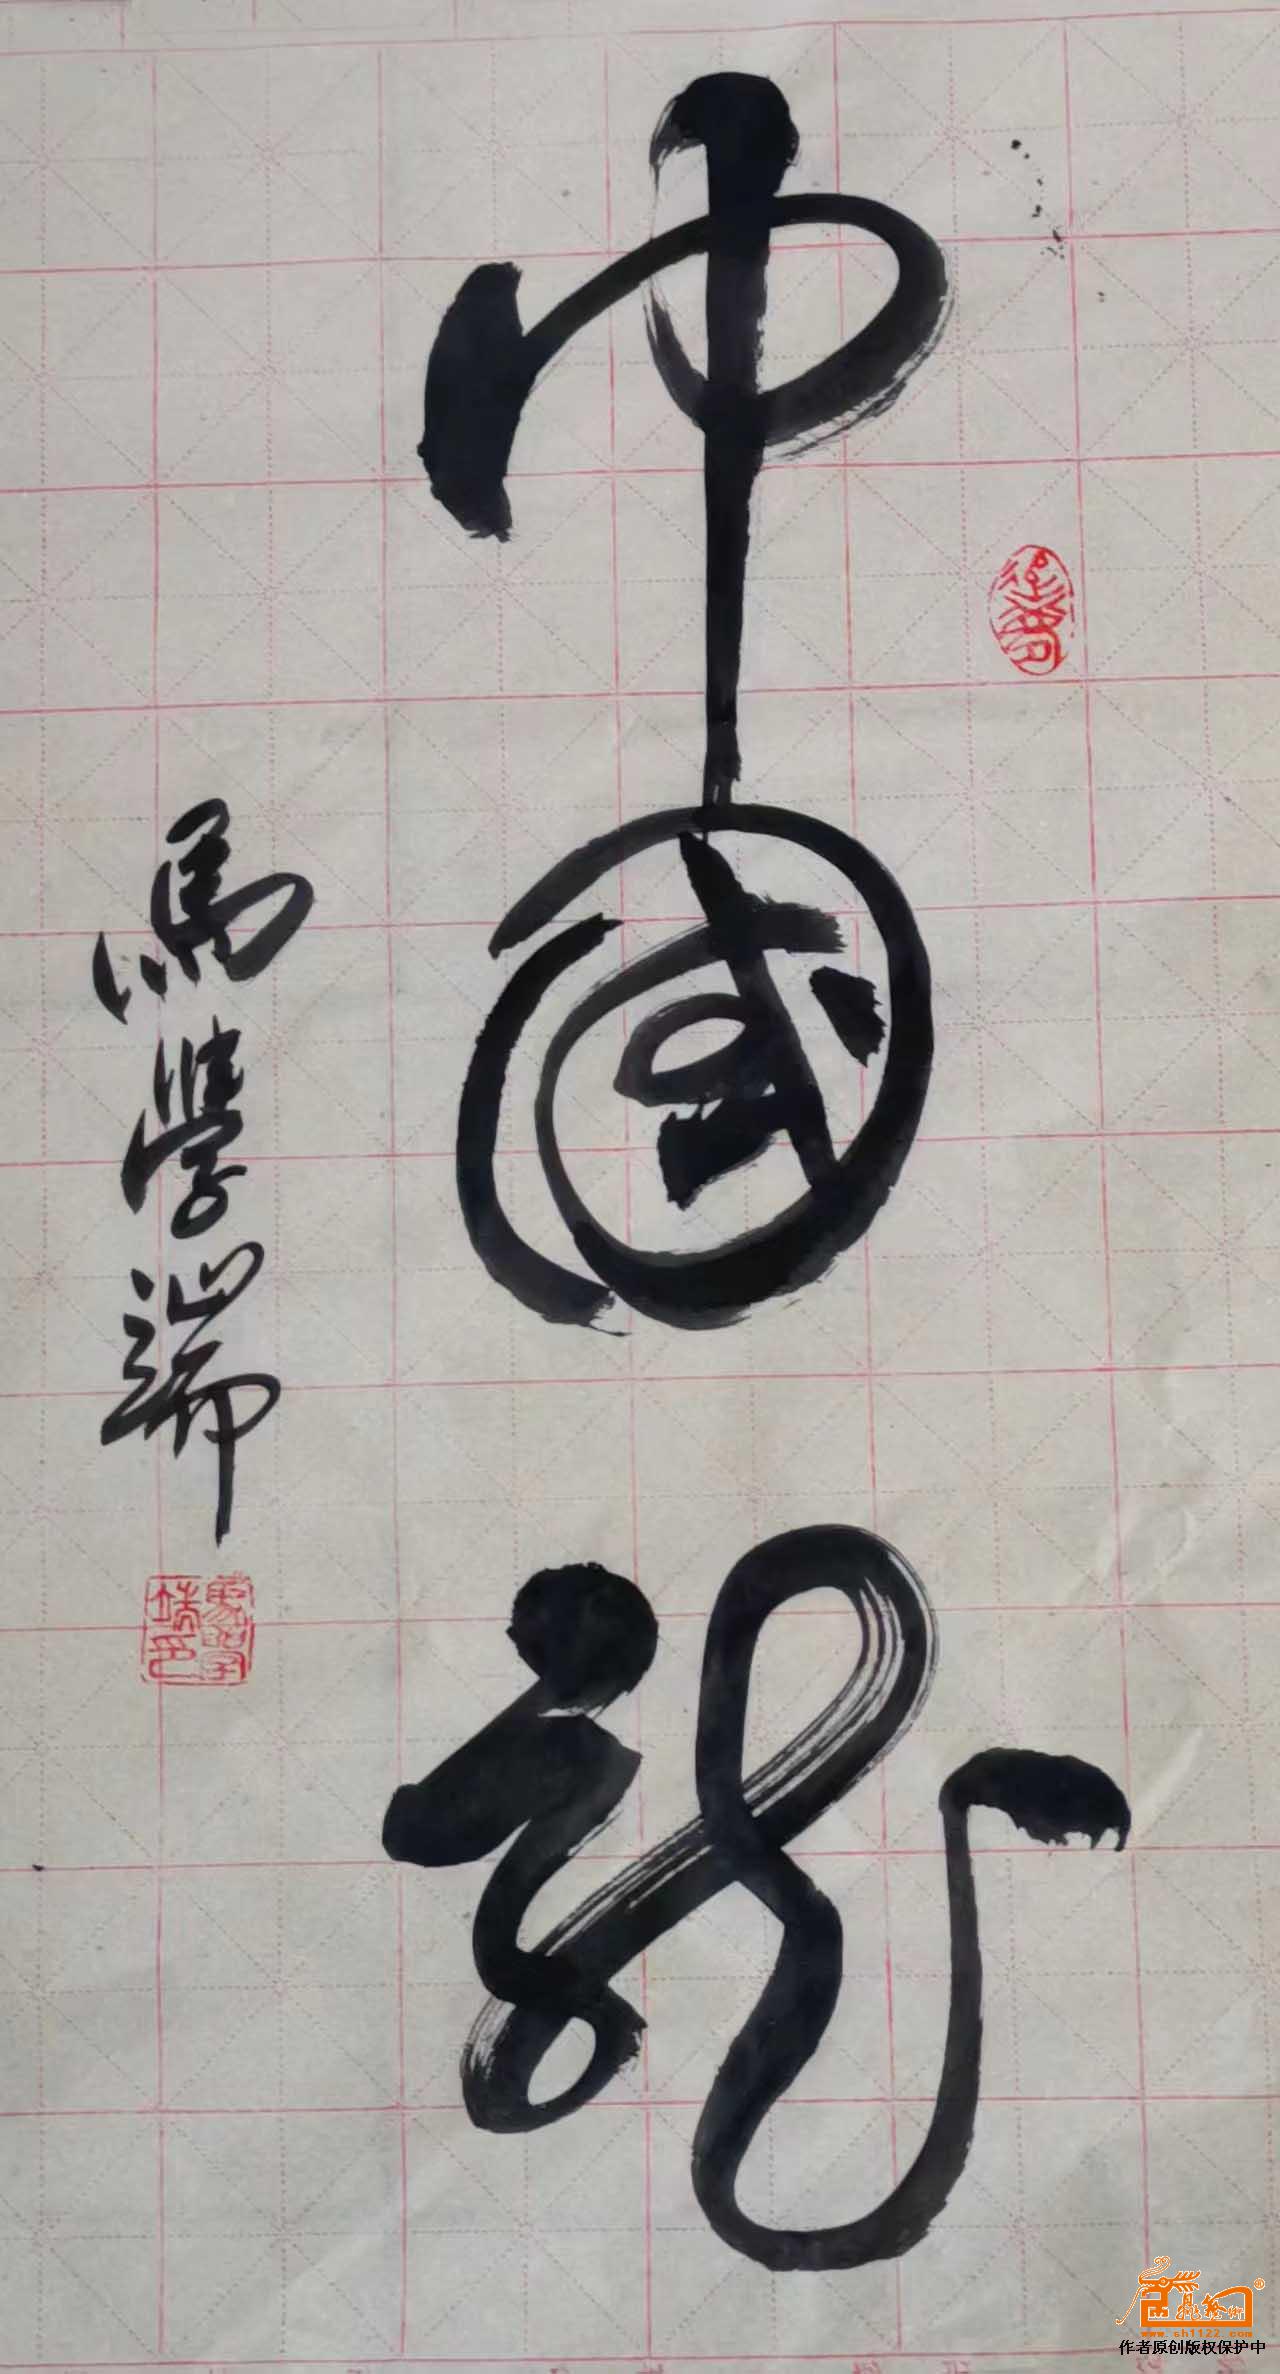 中國龍
馬學端
馬學端印
www.sh1122.com
作者原创版权保护中